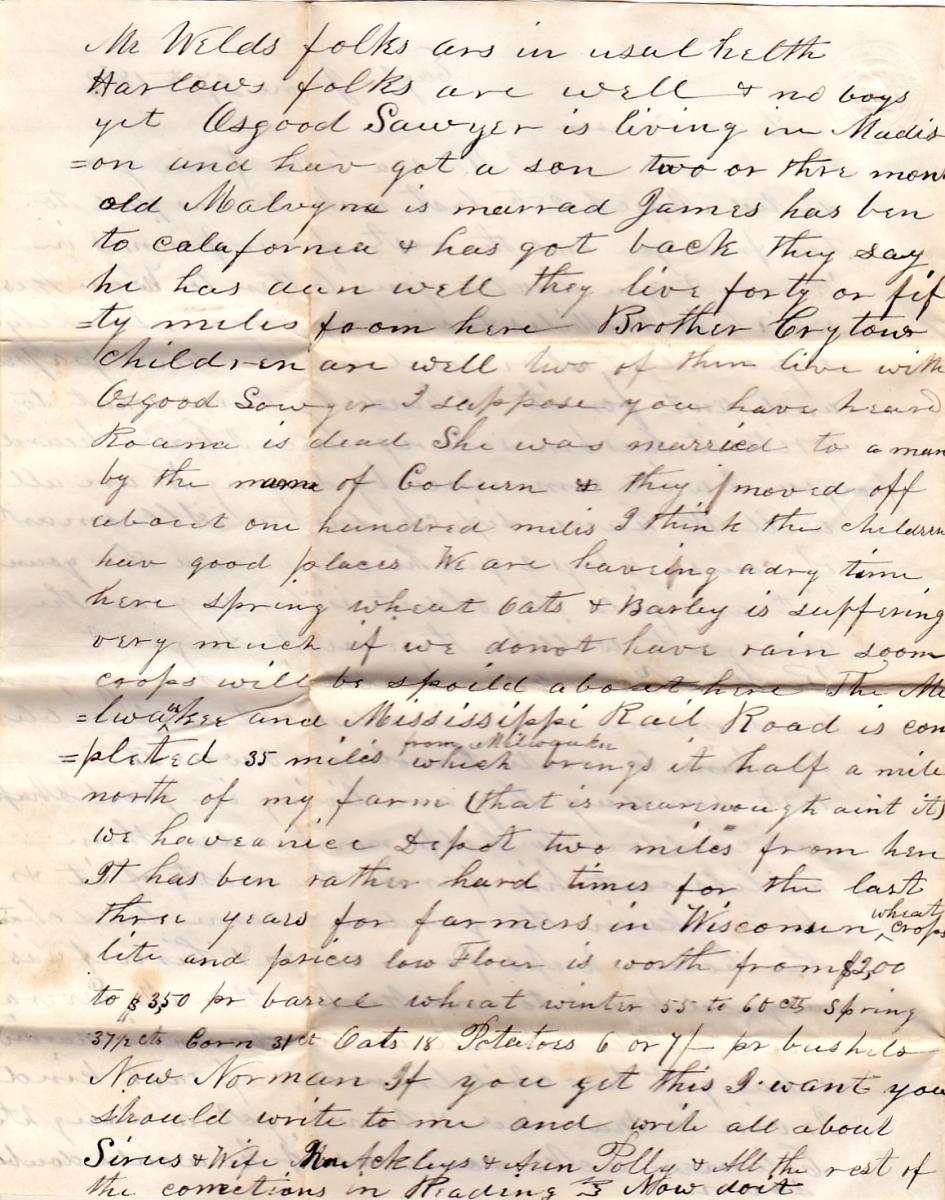 Mr Welds folks ars in usul helth
Harlows folks are well & no boys
yet Osgood Sawyer is living in Madis
=on and hav got a son two or thre mon
old Malvyna is marrad James has ben
to calafornia & has got back they say
he has dun well they live forty or fif
=ty miles from here Brother
children are well two of them live with
Osgood Sawyer I suppose you have heard
Roana is dead She was married to a man
by the name of Coburn & they moved off
about one hundred miles I think the children
hav good places We are haveing a dry time
here spring wheat Oats & Barley is suffering
very much if we donot have rain soom
croops will be spoild about here The Mi
=lwaukee and Mississippi Rail Road is com
=pleted 35 miles from Milwaukee which brings it half a mile
north of my farm (that is nearenough aint it)
we have a nice Depot two miles from here
It has ben rather hard times for the last
three years for farmers in Wisconsin wheat crops
lite and prices low Flour is worth from $2,00
to $3,50 pr barrel wheat winter 55 to 60 cts Spring
37½ cts Corn 31 ct Oats 18 Potatoes 6 or 7/- pr bushels
Now Norman If you get this I want you
should write to me and write all about
Sirus & Wife Ackleys & Aun Polly & All the rest of
the conections in Reading Now doit